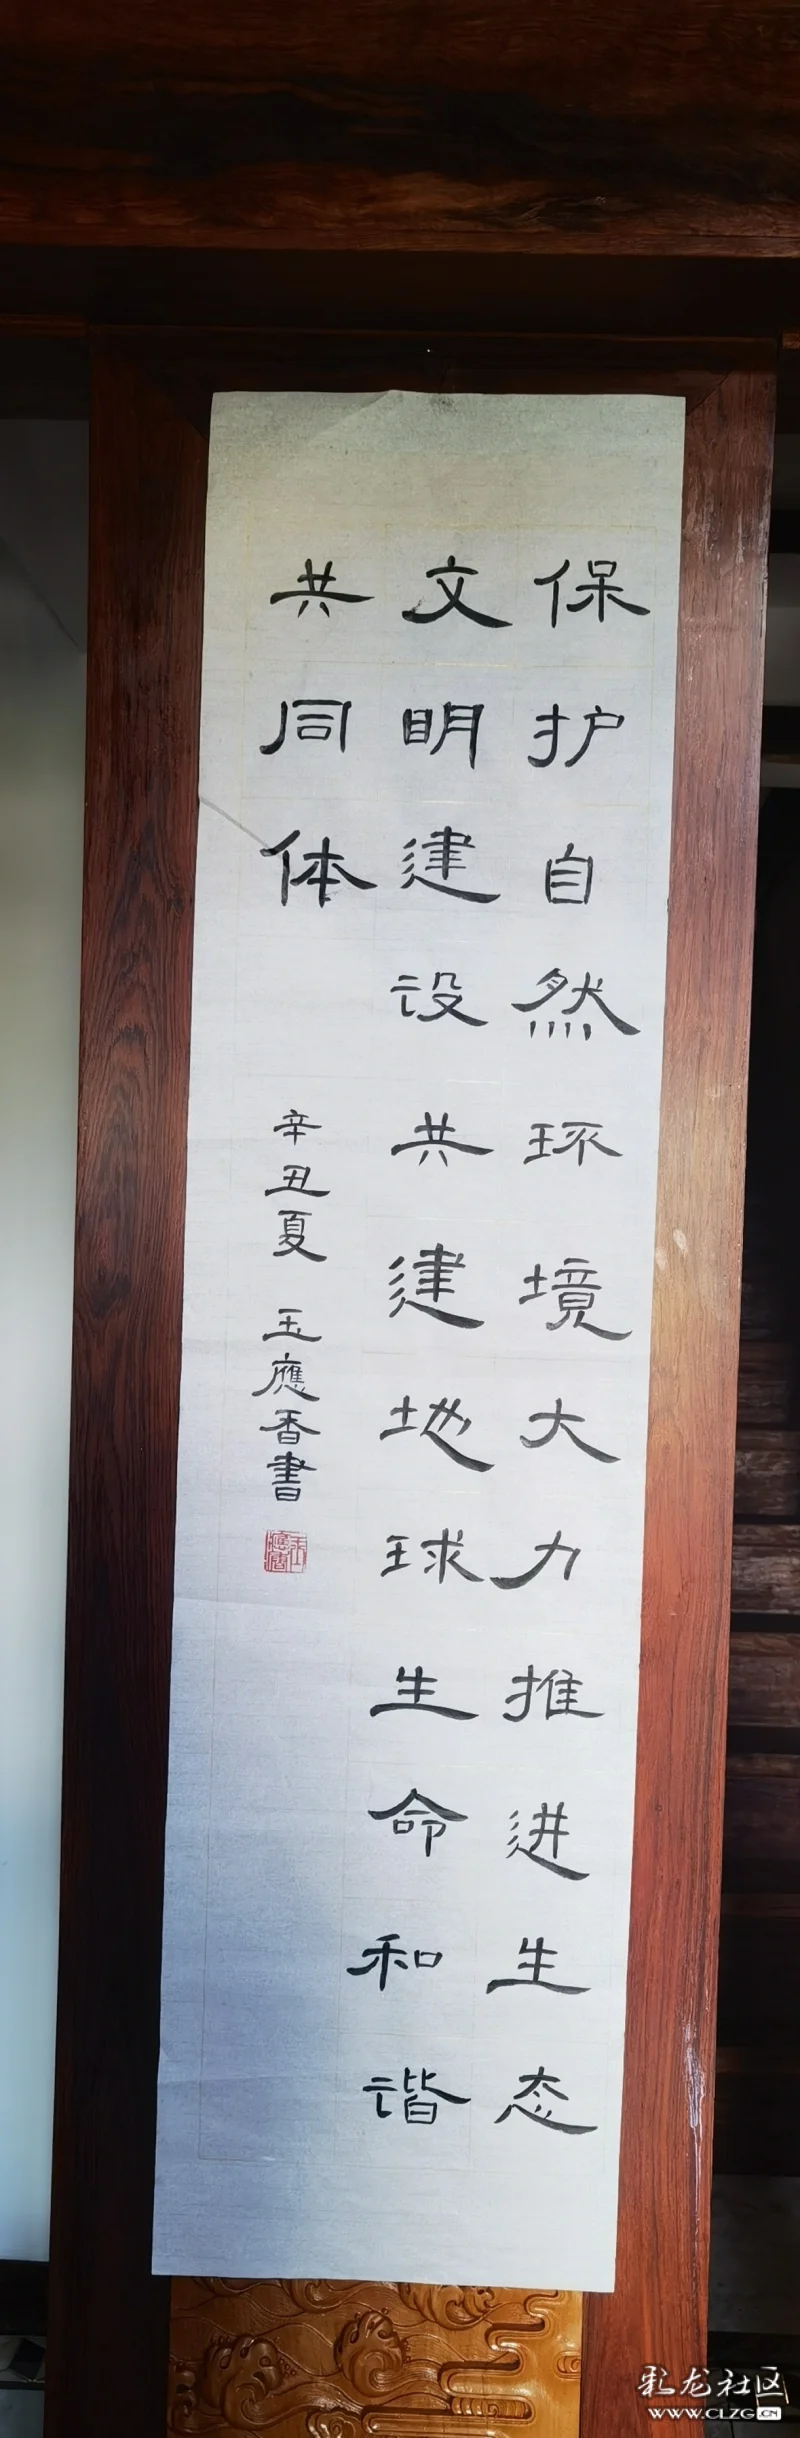 保护自然环境大力推进生态
文明建设共建地球生命和谐
共同体
辛丑夏 玉應香書
彩龙社区
WWW.CLZG.CN